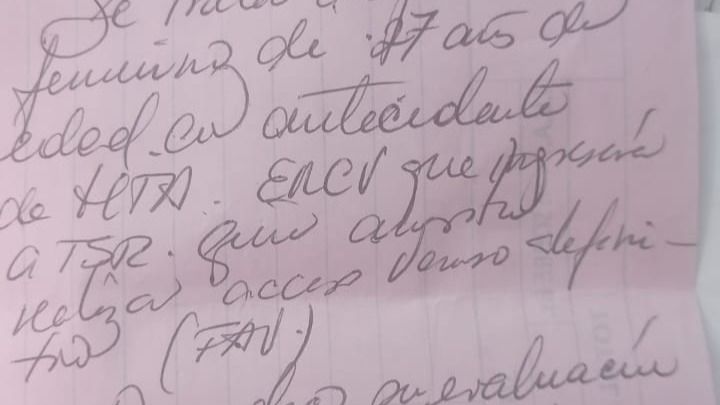 Se trata
femenino de 77 años de
edad con antecedente
de HTA. ERCV que ingresará
a TSR. quien
realizar acceso venoso defini-
tivo (FAV.)
evaluación